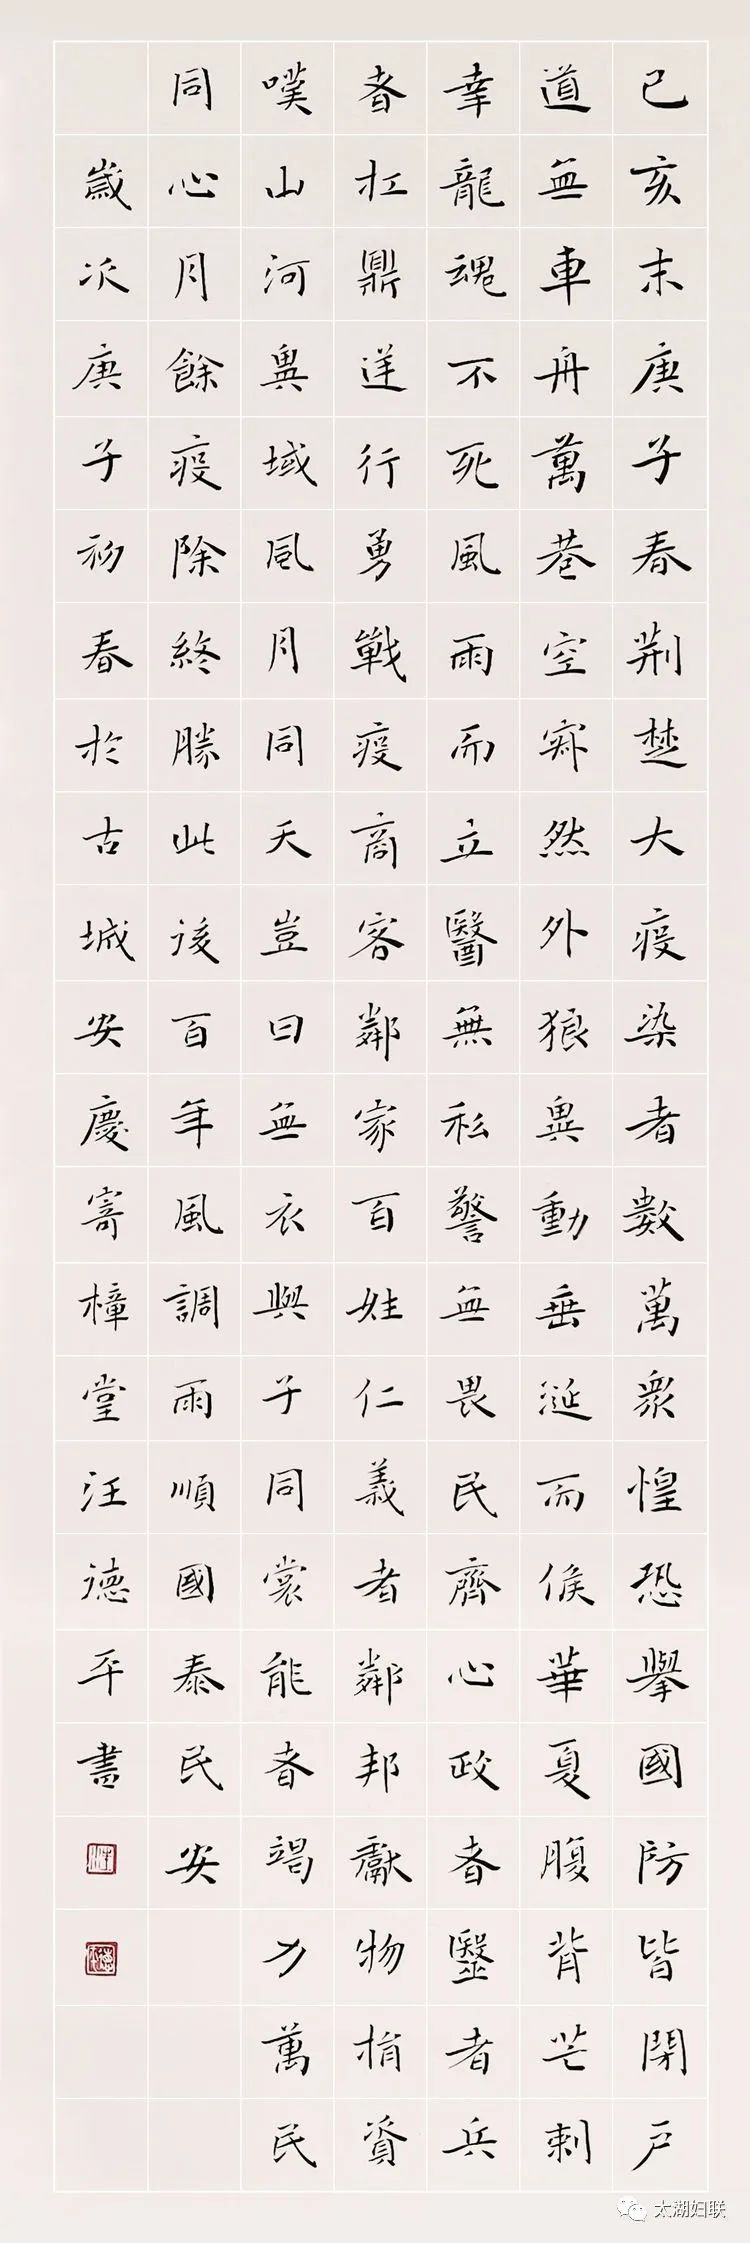 已亥末庚子春荆楚大疫染者數萬衆惶恐舉國防皆閉戶
道無車舟萬巷空寂然外狼異動垂涎而候華夏腹背芒刺
幸龍魂不死風雨而立醫無私警無畏民齊心政者毉者兵
者扛鼎逆行勇戰疫商客鄰家百姓仁義者鄰邦獻物捐資
嘆山河異域風月同天豈曰無衣與子同裳能者竭力萬民
同心月餘疫除終勝此後百年風調雨順國泰民安
歲次庚子初春於古城安慶寄樟堂汪德平書
太湖妇联